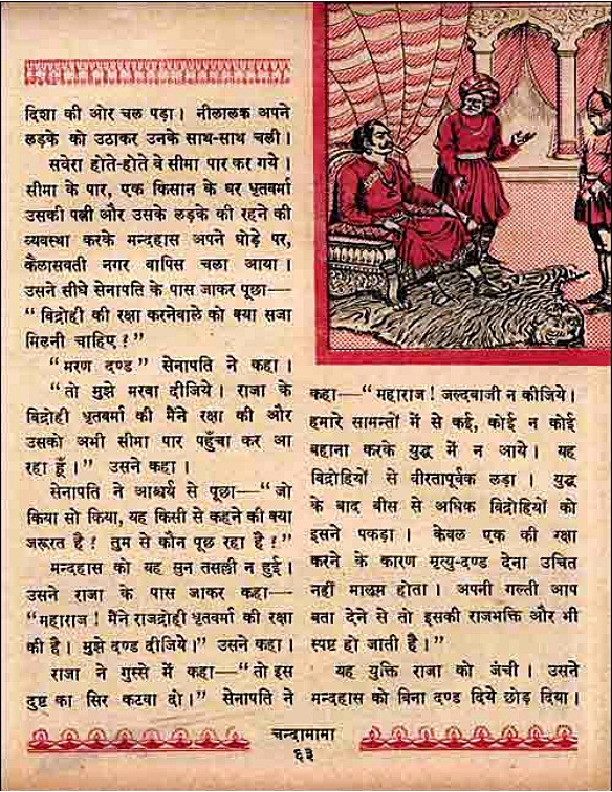 दिशा की ओर चल पड़ा। नीलालक अपने
लड़के को उठाकर उनके साथ-साथ चली।
सवेरा होते-होते वे सीमा पार कर गये।
सीमा के पार, एक किसान के घर धृतवर्मा
उसकी पत्नी और उसके लड़के की रहने की
व्यवस्था करके मन्दहास अपने घोड़े पर,
कैलासवती नगर वापिस चला आया।
उसने सीधे सेनापति के पास जाकर पूछा—
“विद्रोही की रक्षा करनेवाले को क्या सजा
मिलनी चाहिए?”
“मरण दण्ड” सेनापति ने कहा।
“तो मुझे मरवा दीजिये। राजा के
विद्रोही धृतवर्मा की मैंने रक्षा की और
उसको अभी सीमा पार पहुँचा कर आ
रहा हूँ।” उसने कहा।
सेनापति ने आश्चर्य से पूछा—“जो
किया सो किया, यह किसी से कहने की क्या
जरूरत है! तुम से कौन पूछ रहा है?”
मन्दहास को यह सुन तसल्ली न हुई।
उसने राजा के पास जाकर कहा—
“महाराज! मैंने राजद्रोही धृतवर्मा की रक्षा
की है। मुझे दण्ड दीजिये।” उसने कहा।
राजा ने गुस्से में कहा—“तो इस
दुष्ट का सिर कटवा दो।” सेनापति ने
कहा—“महाराज! जल्दबाजी न कीजिये।
हमारे सामन्तों में से कई, कोई न कोई
बहाना करके युद्ध में न आये। यह
विद्रोहियों से वीरतापूर्वक लड़ा। युद्ध
के बाद बीस से अधिक विद्रोहियों को
इसने पकड़ा। केवल एक की रक्षा
करने के कारण मृत्यु-दण्ड देना उचित
नहीं मालूम होता। अपनी गल्ती आप
बता देने से तो इसकी राजभक्ति और भी
स्पष्ट हो जाती है।”
यह युक्ति राजा को जंची। उसने
मन्दहास को बिना दण्ड दिये छोड़ दिया।
चन्दामामा
६३